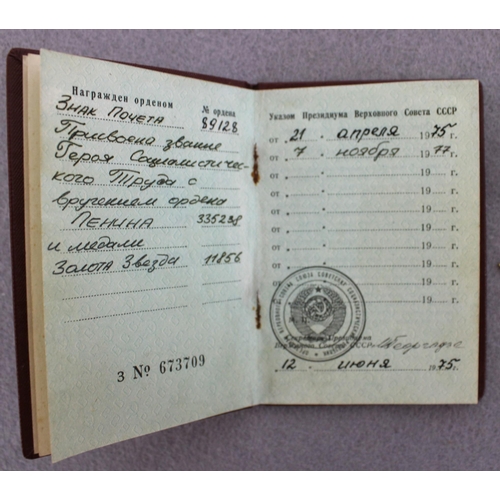 Награжден орденом
№ ордена
Знак Почета 89128
Присвоено звание
Героя Социалистичес-
кого Труда с
вручением ордена
ЛЕНИНА 335238
и медали
Золота Звезда 11856
З № 673709
Указом Президиума Верховного Совета СССР
от „ 21 " апреля 1975 г.
от „ 7 " ноября 1977 г.
от „ " 19 г.
от „ " 19 г.
от „ " 19 г.
от „ " 19 г.
от „ " 19 г.
от „ " 19 г.
от „ " 19 г.
от „ " 19 г.
Секретарь Президиума
Верховного Совета СССР
„ 12 " июня 1975 г.